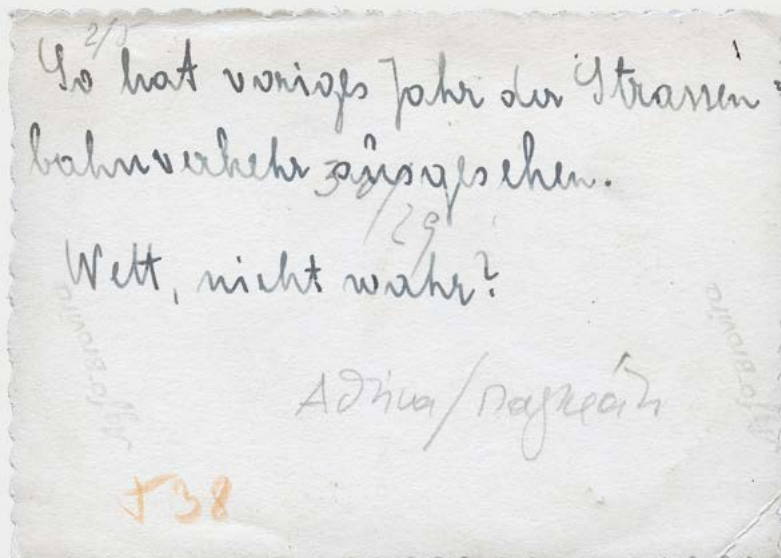 2/5
So hat voriges Jahr der Strassen=
bahnverkehr ausgesehen.
29
Nett, nicht wahr?
Agfa-Brovira
Agfa-Brovira
138